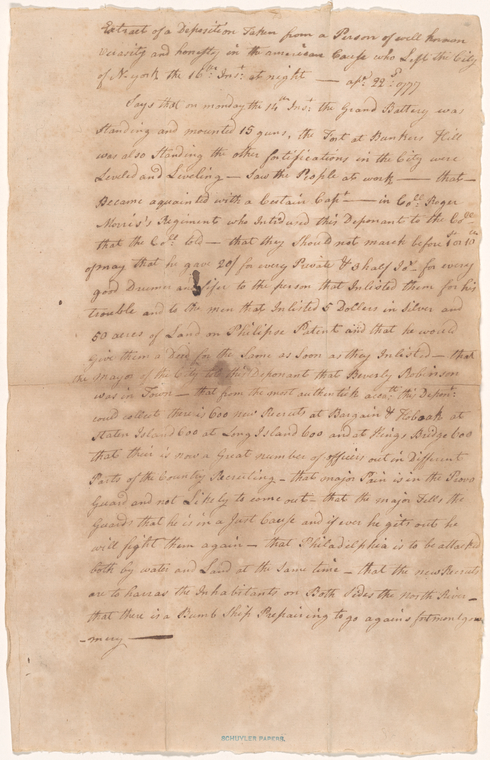 Extract of a Deposition Taken from a Person of well known
Veracity and honesty in the american Cause who Left the City
of N. york the 16th Inst at night — apl 22d 1777
Says that on monday the 14th Inst the Grand Battery was
Standing and mounted 15 guns, the Fort at Bunkers Hill
was also Standing the other fortifications in the City were
Leveled and Leveling — Saw the People at work — that
Became aquainted with a Certain Capt — in Col Roger
Morris's Regiment who Intduced this Deponant to the Col
that the Col told — that they Should not march before 8 or 10
of may that he gave 20/ for every Private & 3 half Jos for every
good Drumer and fifer to the person that Inlisted them for his
trouble and to the men that Inlisted 5 Dollers in Silver and
50 acres of Land on Philipse Patent and that he would
Give them a Deed for the Same as Soon as they Inlisted — that
the mayor of the City told this Deponant that Beverly Robinson
was in Town — that from the most authentick this Depont
could collect there is 600 new Recruits at Bargain & Hoboak at
Staten Island 600 at Long Island 600 and at Kings Bridge 600
that their is now a Great number of officers out in Different
Parts of the Country Recruiling — that major Pain is in the Provo
Guard and not Likely to come out — that the major Tells the
Guards that he is in a Just Cause and if ever he gets out he
will fight them again — that Philadelphia is to be attacked
both by water and Land at the Same time — that the new Recruits
are to harras the Inhabitants on Both Sides the North River —
that there is a Bumb Ship Prepairing to go agains fort montgo-
-mery —
SCHUYLER PAPERS.